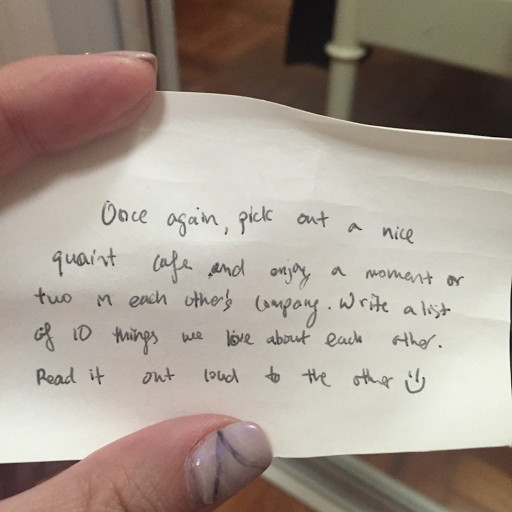 Once again, pick out a nice
quaint cafe and enjoy a moment or
two in each other's company. Write a list
of 10 things we love about each other.
Read it out loud to the other :)